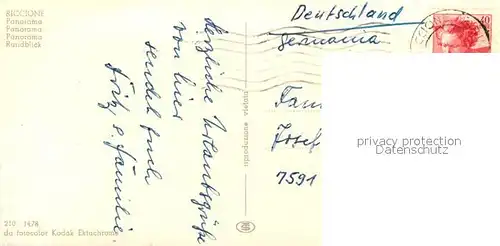 RICCIONE
Panorama
Panorama
Panorama
Rundblick
Herzliche Urlaubsgrüße
von hier
sendet Euch
Fritz u. Familie
210 1476
da fotocolor Kodak Ektachrome
riproduzione vietata
Deutschland
Germania
40
Fam
Josef
7591
privacy protection
Datenschutz